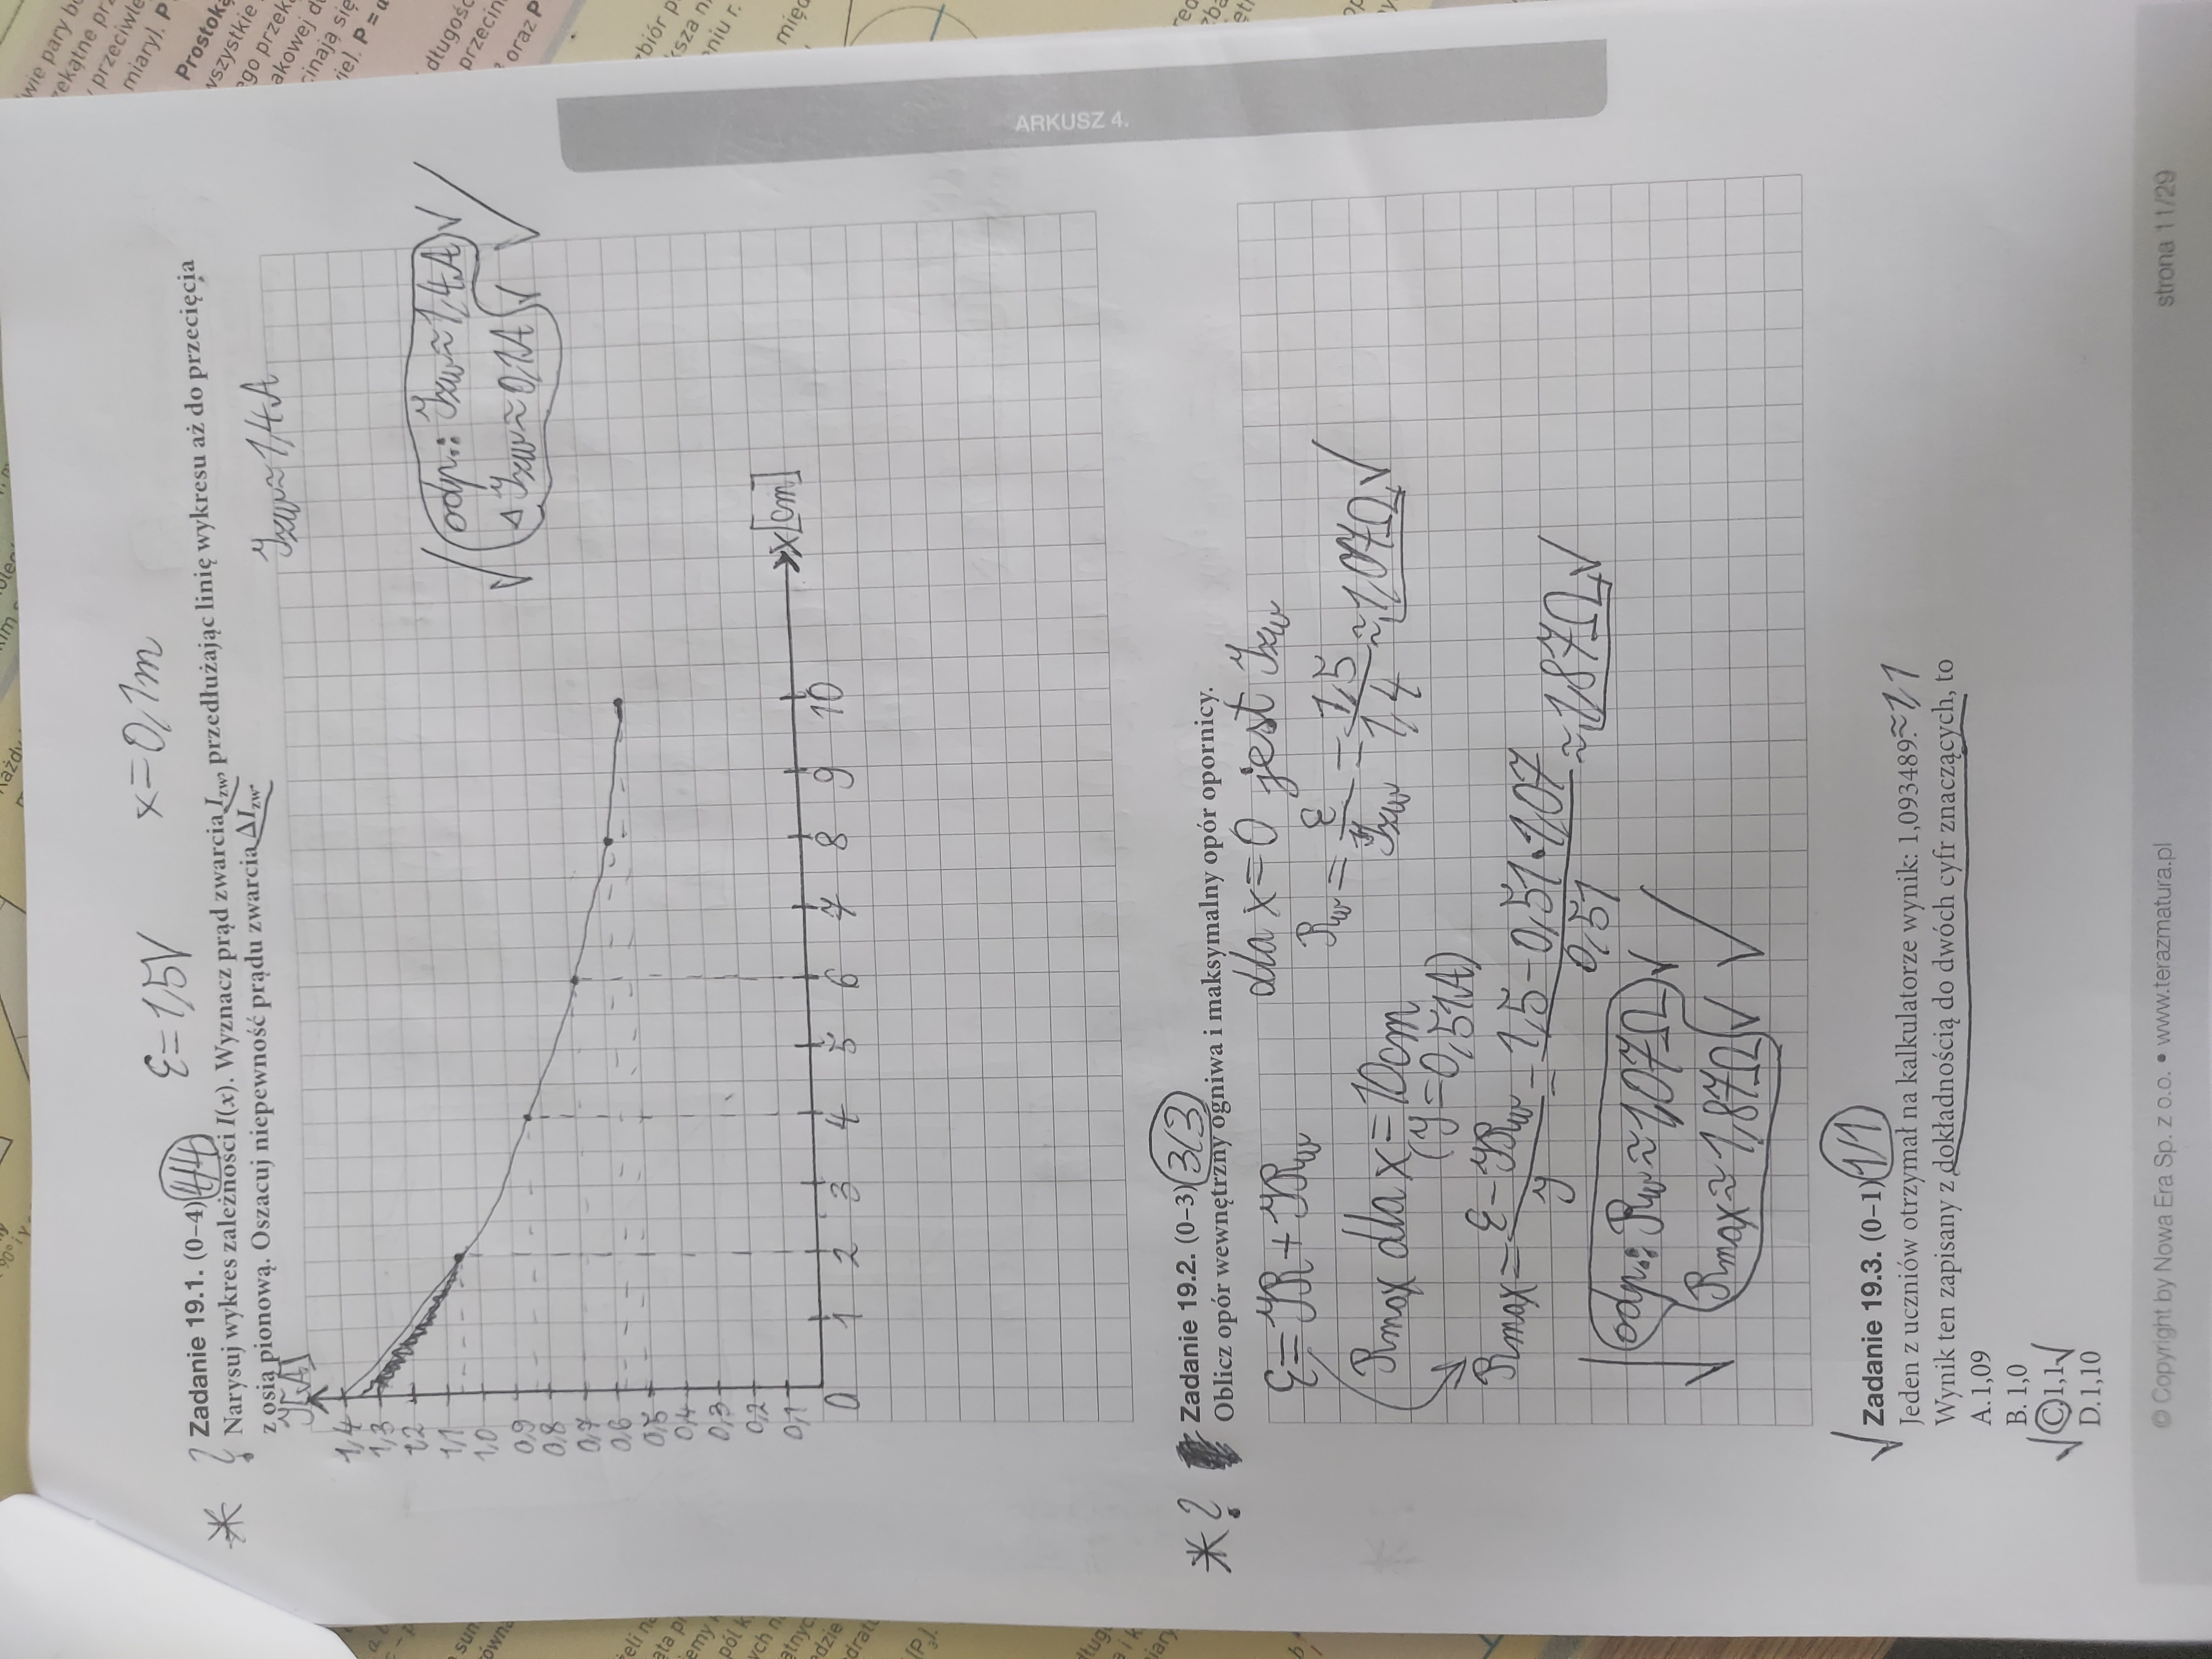 ARKUSZ 4.
ε=1,5V x=0,1m
* ? Zadanie 19.1. (0–4) 4/4
Narysuj wykres zależności I(x). Wyznacz prąd zwarcia Izw, przedłużając linię wykresu aż do przecięcia
z osią pionową. Oszacuj niepewność prądu zwarcia ΔIzw.
Izw≈1,4A
I[A]
1,4
1,3
1,2
1,1
1,0
0,9
0,8
0,7
0,6
0,5
0,4
0,3
0,2
0,1
0 1 2 3 4 5 6 7 8 9 10 x[cm]
√ odp.: Izw≈1,4A √
Δ Izw≈0,1A √ √
* ? Zadanie 19.2. (0–3) 3/3
Oblicz opór wewnętrzny ogniwa i maksymalny opór opornicy.
ε=IR+IRw
dla x=0 jest Izw
Rw=ε/Izw=1,5/1,4≈1,07Ω √
Rmax dla x=10cm
(I=0,51A)
Rmax=ε-IRw/I=1,5-0,51·1,07/0,51≈1,87Ω √
√ odp.: Rw≈1,07Ω √
√ Rmax≈1,87Ω √ √
√ Zadanie 19.3. (0–1) 1/1
Jeden z uczniów otrzymał na kalkulatorze wynik: 1,093489. ≈1,1
Wynik ten zapisany z dokładnością do dwóch cyfr znaczących, to
A. 1,09
B. 1,0
√ C. 1,1 √
D. 1,10
© Copyright by Nowa Era Sp. z o.o. • www.terazmatura.pl strona 11/29